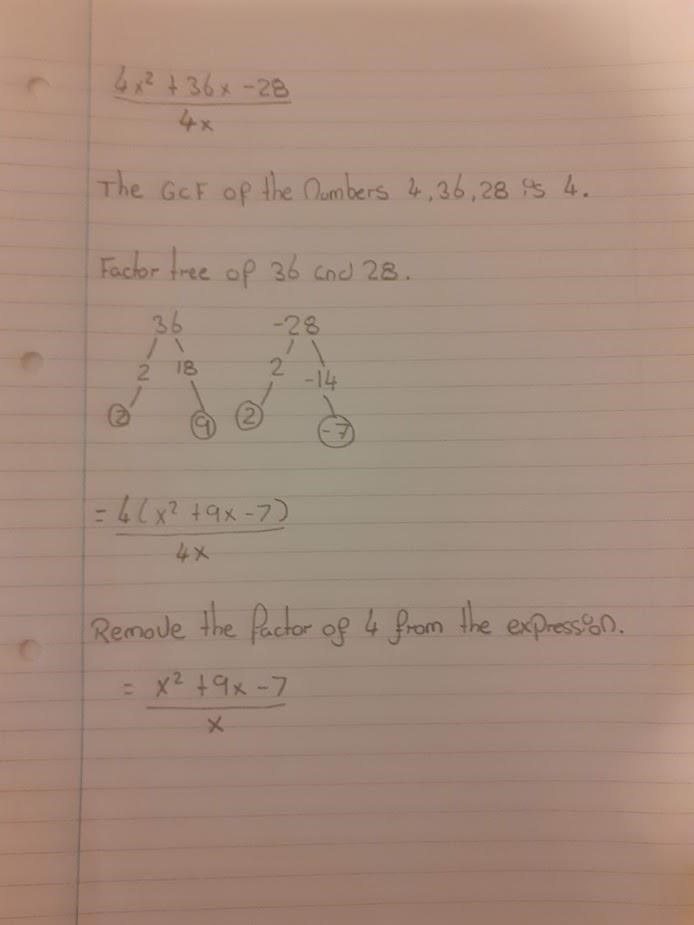 4x² + 36x - 28
4x
The GCF of the Numbers 4, 36, 28 is 4.
Factor tree of 36 and 28.
36 -28
2 18 2 -14
2 9 2 -7
= 4(x² + 9x - 7)
4x
Remove the factor of 4 from the expression.
= x² + 9x - 7
x